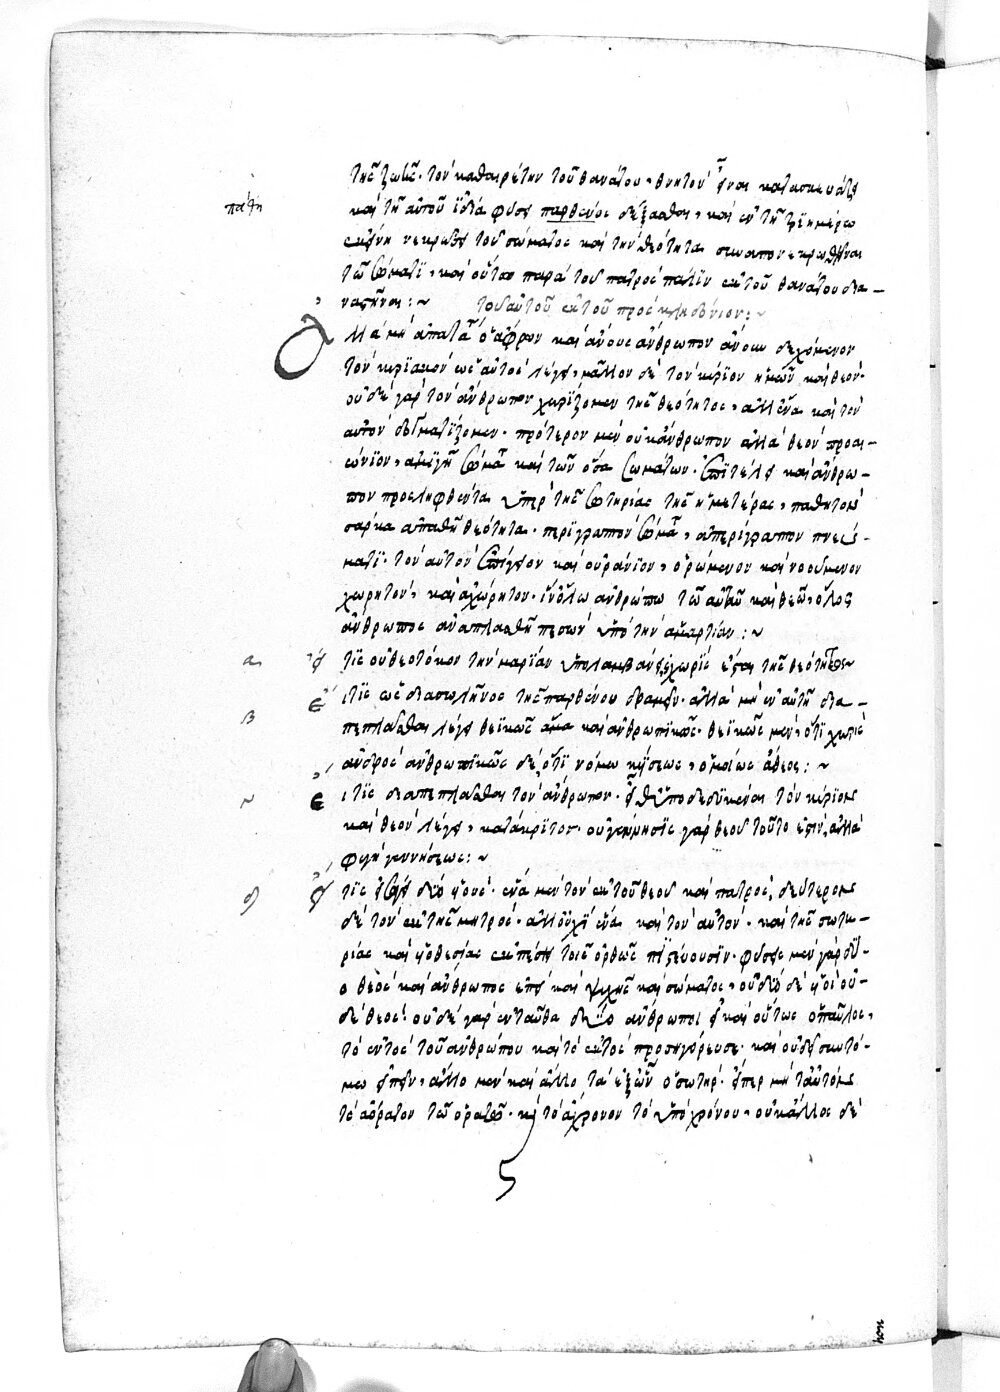 τῆς ζωῆς· τὸν καθαιρέτην τοῦ θανάτου, θνητὸν εἶναι κατασκευάσῃ
πάθη
καὶ τῇ αὐτοῦ ἰδίᾳ φύσει παρθένος δέξασθαι, καὶ ἐν τῇ τριημέρω
ἐκείνη νεκρώσει τοῦ σώματος καὶ τὴν θεότητα συναπονεκρωθῆναι
τῶ σώματι, καὶ οὕτω παρὰ τοῦ πατρὸς πάλιν ἐκ τοῦ θανάτου δια-
ναστῆναι :~ τοῦ αὐτοῦ ἐκ τοῦ πρὸς κληδόνιον :~
Ἀλλὰ μὴ ἀπατάτω ὁ ἄφρων καὶ ἄνους ἄνθρωπον ἄνουν δεχόμενον
τὸν κυριακὸν ὡς αὐτὸς λέγει, μᾶλλον δὲ τὸν κύριον ἡμῶν καὶ θεόν·
οὐδὲ γὰρ τὸν ἄνθρωπον χωρίζομεν τῆς θεότητος, ἀλλ' ἕνα καὶ τὸν
αὐτὸν δογματίζομεν· πρότερον μὲν οὐκ ἄνθρωπον ἀλλὰ θεὸν προαι-
ώνιον, ἀμιγῆ σώματος καὶ τῶν ὅσα σωμάτων· ἐπὶ τέλει καὶ ἄνθρω-
πον προσληφθέντα ὑπὲρ τῆς σωτηρίας τῆς ἡμετέρας, παθητὸν
σαρκὶ ἀπαθῆ θεότητι· περίγραπτον σώματι, ἀπερίγραπτον πνεύ-
ματι· τὸν αὐτὸν ἐπίγειον καὶ οὐράνιον, ὁρώμενον καὶ νοούμενον
χωρητὸν, καὶ ἀχώρητον· ἵν' ὅλω ἀνθρώπω τῶ αὐτῶ καὶ θεῶ, ὅλος
ἄνθρωπος ἀναπλασθῆ πεσὼν ὑπὸ τὴν ἁμαρτίαν :~
α εἴ τις οὐ θεοτόκον τὴν μαρίαν ὑπολαμβάνει, χωρίς ἐστι τῆς θεότητος~
εἴ τις ὡς διὰ σωλῆνος τῆς παρθένου δραμεῖν· ἀλλὰ μὴ ἐν αὐτῆ δια-
β πεπλάσθαι λέγει θεϊκῶς ἅμα καὶ ἀνθρωπικῶς· θεϊκῶς μὲν, ὅτι χωρὶς
ἀνδρός ἀνθρωπικῶς δέ, ὅτι νόμω κυήσεως, ὁμοίως ἄθεος :~
γ εἴ τις διαπεπλάσθαι τὸν ἄνθρωπον· εἶθ' ὑποδεδυκέναι τὸν κύριον
καὶ θεὸν λέγει, κατάκριτος· οὐ γέννησις γὰρ θεοῦ τοῦτο ἐστὶν, ἀλλὰ
φυγὴ γεννήσεως :~
δ εἴ τις εἰσάγει δύο υἱούς· ἕνα μὲν τὸν ἐκ τοῦ θεοῦ καὶ πατρός, δεύτερον
δὲ τὸν ἐκ τῆς μητρός· ἀλλ' οὐχὶ ἕνα καὶ τὸν αὐτὸν· καὶ τῆς σωτη-
ρίας καὶ υἱοθεσίας ἐκπέσοι τοῖς ὀρθῶς πιστεύουσιν· φύσεις μὲν γὰρ δύ-
ο θεὸς καὶ ἄνθρωπος ἐπεὶ καὶ ψυχῆς καὶ σώματος, οὐ δύο δὲ υἱοὶ οὐ-
δὲ θεοί! οὐδὲ γὰρ ἐνταῦθα δύο ἄνθρωποι εἰ καὶ οὕτως ὁ παῦλος,
τὸ ἐντὸς τοῦ ἀνθρώπου καὶ τὸ ἐκτὸς προσηγόρευσε· καὶ οὐ δεῖ συντό-
μως εἰπεῖν, ἄλλο μὲν καὶ ἄλλο τὰ ἐξ ὧν ὁ σωτήρ· εἴπερ μὴ ταὐτὸν
τὸ ἀόρατον τῶ ὁρατῶ· καὶ τὸ ἄχρονον τὸ ὑπὸ χρόνον, οὐκ ἄλλος δὲ